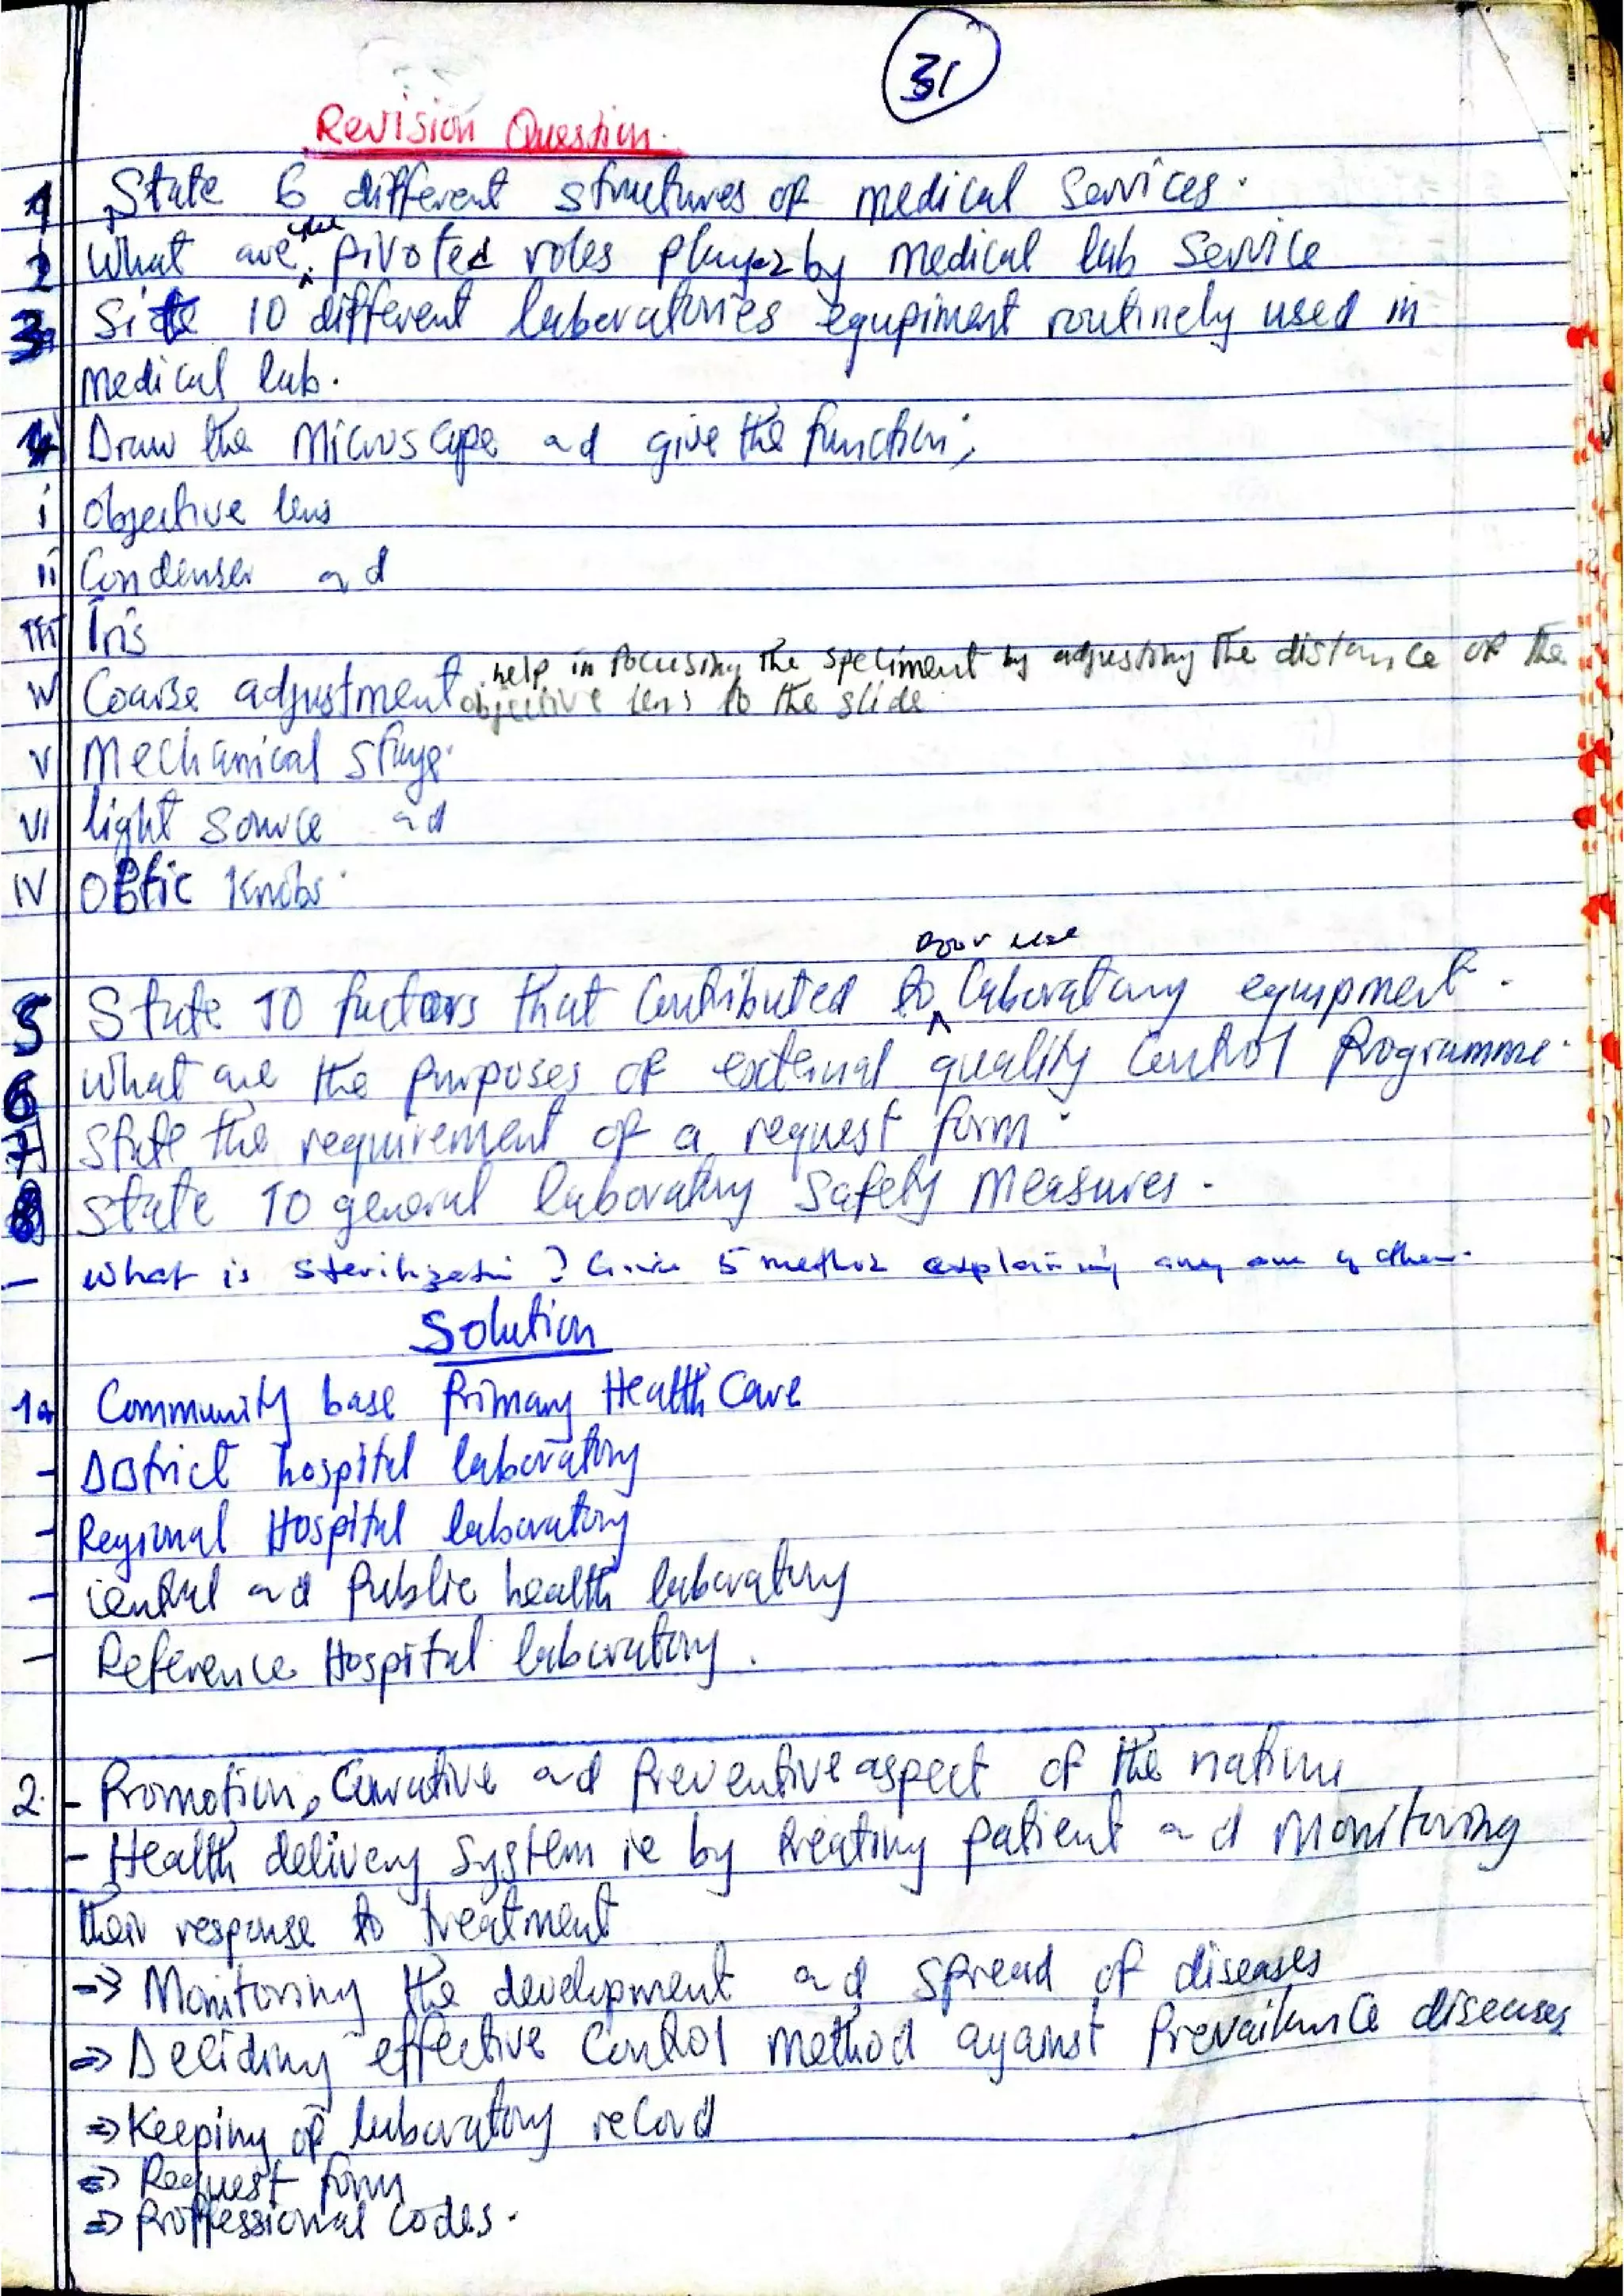 31
Revision Question.
1 State 6 different structures of medical services.
2 What are the pivoted roles played by medical lab service
3 Site 10 different laboratories equipment routinely used in
medical lab.
4 Draw the Microscope and give the function;
i objective lens
ii Condenser and
iii Iris
iv Coarse adjustment help in focusing the speciment by adjusting the distance of the
objective lens to the slide
v Mechanical stage.
vi light source and
iv Optic Knobs.
poor use
5 State 10 factors that contributed to ^ laboratory equipment.
6 What are the purposes of external quality control Programme.
7 State the requirement of a request form.
8 State 10 general laboratory safety measures.
- What is sterilization? Give 5 method explaining any one of them.
Solution
1a Community base primary Health Care
- District hospital laboratory
- Regional Hospital laboratory
- central and Public health laboratory
- Reference Hospital laboratory.
2. - Promotion, Curative and Preventive aspect of the nation
- Health delivery system ie by treating patient and Monitoring
their response to treatment
=> Monitoring the development and spread of diseases
=> Deciding effective Control method against Prevailance diseases
=> Keeping of laboratory record
=> Request form
=> Proffessional codes.